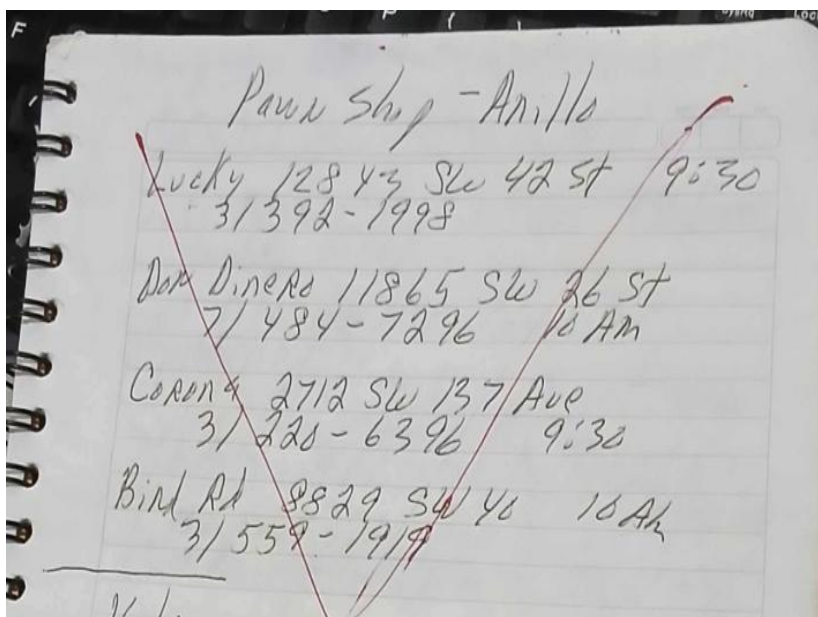 Pawn Shop - Anillo
Lucky 12843 SW 42 St 9:30
3/392-1998
Don Dinero 11865 SW 26 St
7/484-7296 10 Am
Corona 2712 SW 137 Ave
3/220-6396 9:30
Bird Rd 8829 SW 40 10 Am
3/559-1919